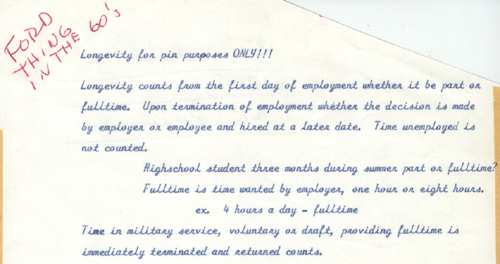 FORD
THING
IN THE 60's
Longevity for pin purposes ONLY!!!
Longevity counts from the first day of employment whether it be part or
fulltime. Upon termination of employment whether the decision is made
by employer or employee and hired at a later date. Time unemployed is
not counted.
Highschool student three months during summer part or fulltime?
Fulltime is time wanted by employer, one hour or eight hours.
ex. 4 hours a day - fulltime
Time in military service, voluntary or draft, providing fulltime is
immediately terminated and returned counts.